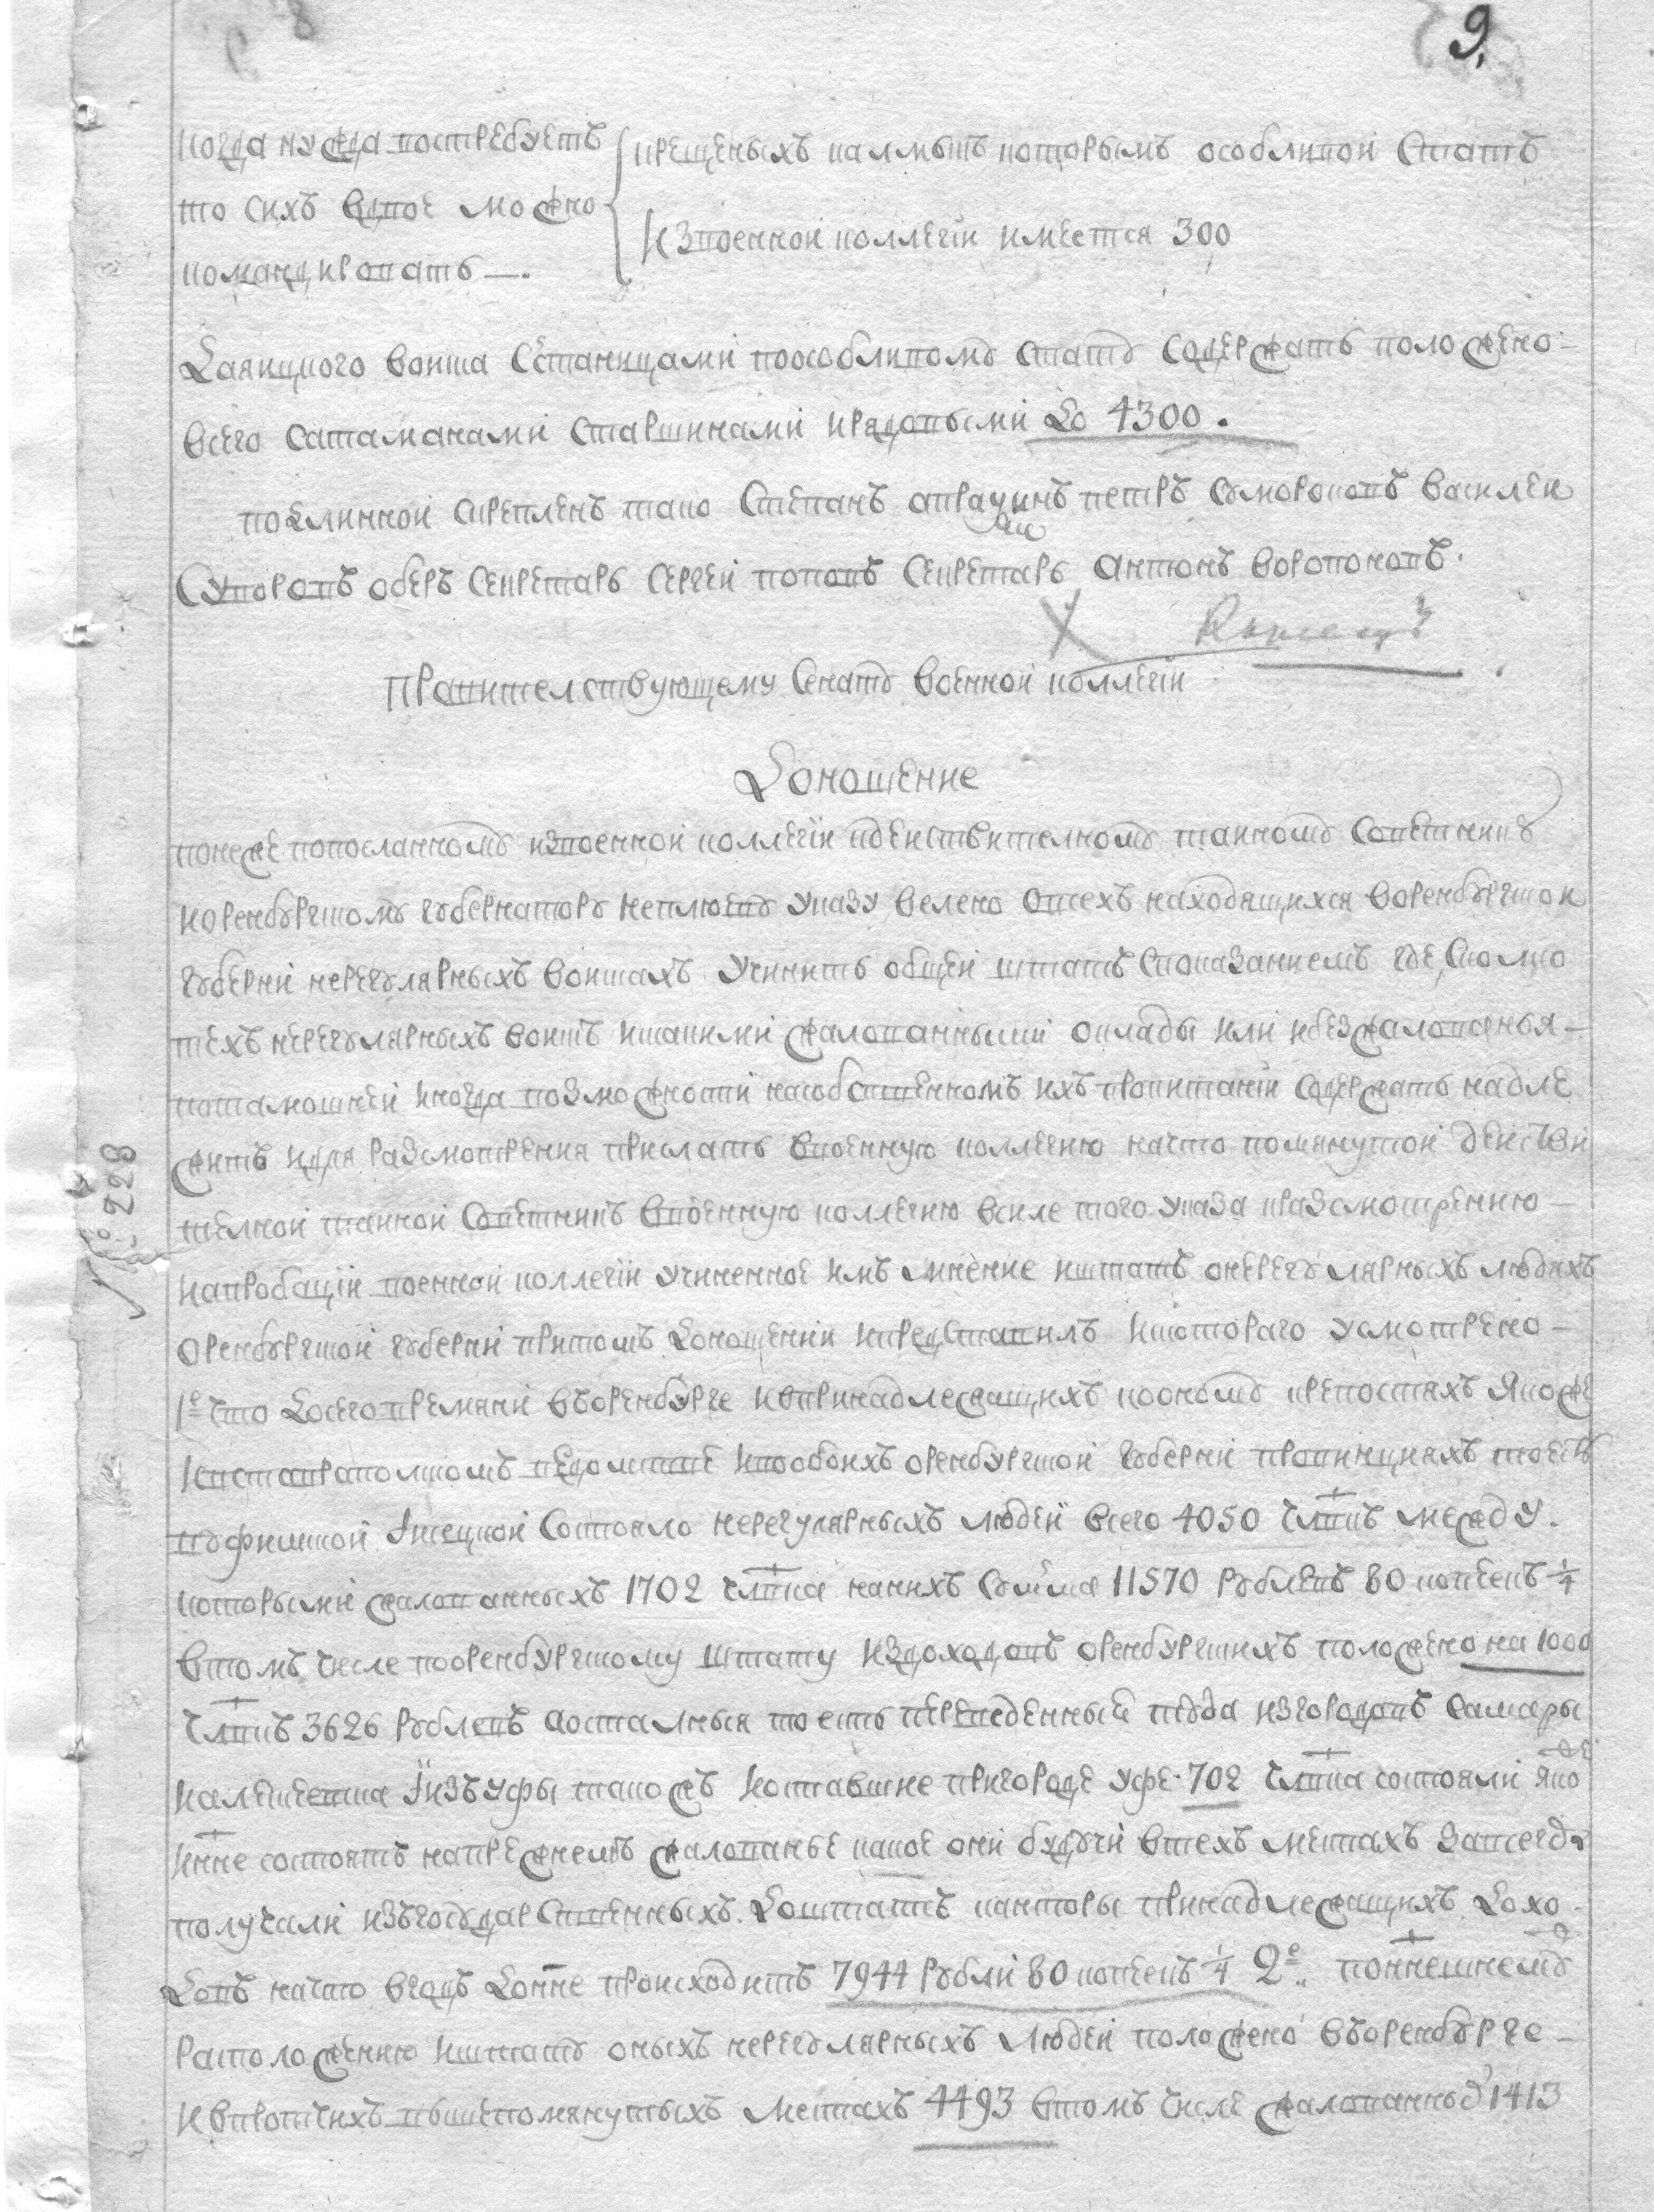 9.
когда нужда востребуетъ
то сихъ вдвое можно
командировать —.
крещеныхъ калмыкъ которымъ особливой статъ
изъ военной коллегіи имеется 300
Да яицкого воиска съ станицами по особливому стату содержать положено
всего сатаманами старшинами и рядовыми до 4300.
подлинной скрепленъ тако Степанъ апраѯинъ петръ сумороковъ василеи
Суворовъ оберъ секретарь сергеи поповъ секретарь антонъ воропоновъ.
Конецъ
правителствующему сенату военной коллегіи
Доношение
понеже по посланному из военной коллегіи к действителному тайному советнику
и оренбургскому губернатору неплюеву указу велено о техъ находящихся в оренбургскои
губерніи нерегулярныхъ воискахъ учинить общей штатъ с показаниемъ где сколко
техъ нерегулярныхъ воискъ и какими жалованными оклады или и без жалованья
по тамошней и когда по возможности на собственномъ ихъ пропитаніи содержать надле
житъ и для разсмотрения прислать в военную коллегию на что помянутой действи
телной тайной советникъ в военную коллегию в силе того указа к разсмотрению
и апробаціи военной коллегіи учиненное имъ мнение и штатъ о нерегулярныхъ людяхъ
оренбургской губерніи при томъ доношеніи и представилъ ис котораго усмотрено
1е что до сего времяни въ оренбурге и в принадлежащихъ к оному крепостях якоже
и в ставрополскомъ ведомстве и во обоихъ оренбургской губерніи провинцияхъ тоесть
в уфимской и исецкой состояло нерегулярныхъ людей всего 4050 члвкъ между
которыми жалованныхъ 1702 члвка на нихъ сумма 11570 рублевъ 80 копеекъ ¼
в томъ числе по оренбургскому штату из доходовъ оренбургскихъ положено на 1000
члвкъ 3626 рублевъ а осталныя то есть переведенные туда из городовъ самары
и алексеевска и изъ уфы такожъ и оставшие в пригороде уфе 702 члвка состояли якоже
и нне состоятъ на прежнемъ жалованье какое они будучи в техъ местахъ завсегда
получали изъ государственныхъ до штатсъ канторы принадлежащихъ дохо
довъ на что в годъ до нне происходитъ 7944 рубли 80 копеекъ ¼ 2е. по ннешнему
расположению и штату оныхъ нерегулярныхъ людей положено въ оренбурге
и в протчихъ вышепомянутыхъ местахъ 4493 в томъ числе жалованныхъ 1413
№ 228